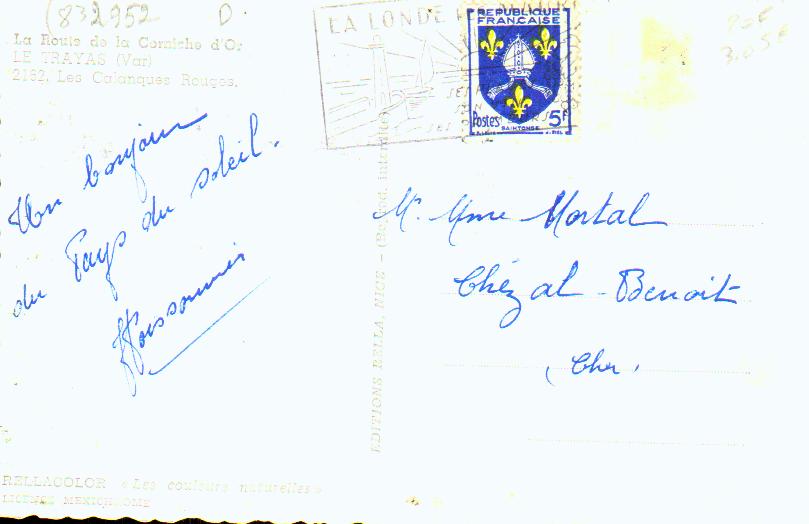 (832952 D
La Route de la Corniche d'Or
LE TRAYAS (Var)
2162. Les Calanques Rouges.
LA LONDE
REPUBLIQUE
FRANÇAISE
Postes 5F
SAINTONGE
3.05€
Un bonjour
du Pays du soleil.
Mr. Mme Mortal
Chézal-Benoit
(Cher.
EDITIONS RELLA, NICE - (Reprod. interdite)
RELLACOLOR « Les couleurs naturelles »
LICENCE MEXICHROME